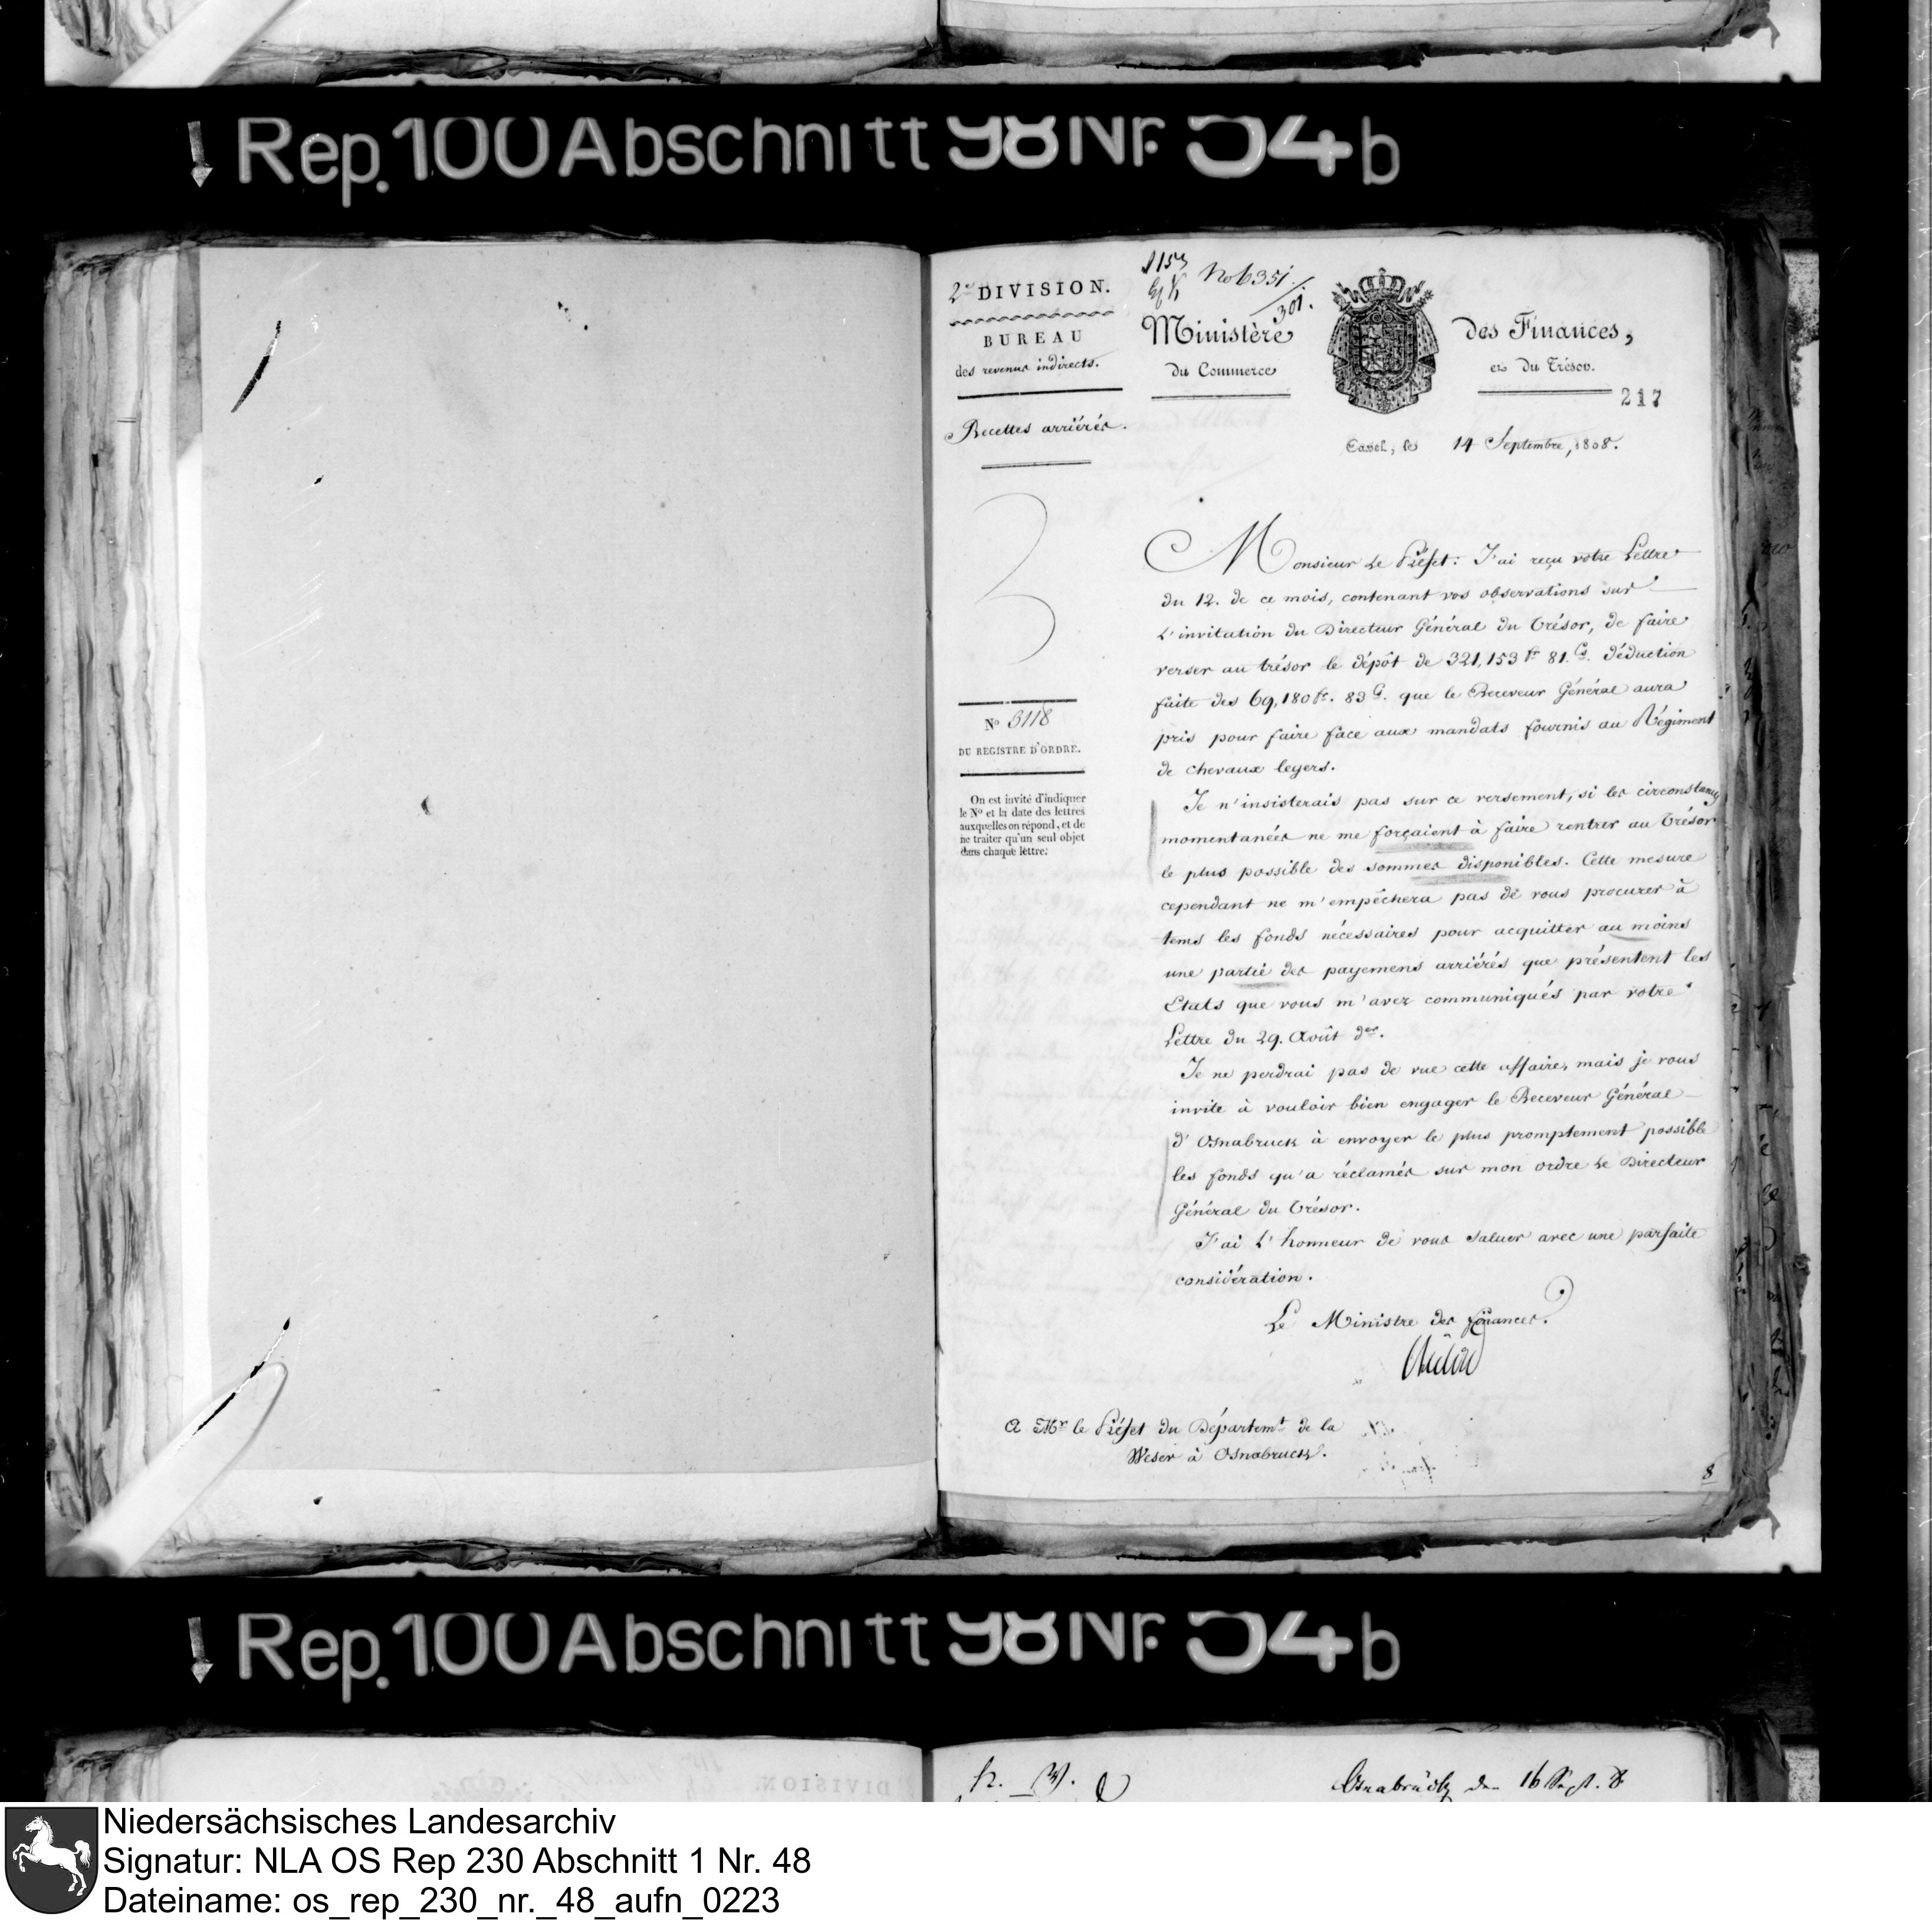 Rep. 100 Abschnitt 98 Nr. 54 b
2e DIVISION.
BUREAU
des revenus indirects.
Recettes arriérées.
1153
No 6351.
301.
Ministère
des Finances,
du Commerce
et du Trésor.
217
Cassel, le 14 Septembre, 1808.
Monsieur Le Préfet: J'ai reçu votre Lettre
du 12. de ce mois, contenant vos observations sur
l'invitation du Directeur Général du Trésor, de faire
verser au trésor le dépôt de 321,153 fr 81. Cs. déduction
faite des 69,180 fr. 83 Cs. que le Receveur Général aura
pris pour faire face aux mandats fournis au Régiment
de chevaux legers.
Je n'insisterais pas sur ce versement, si les circonstances
momentanées ne me forçaient à faire rentrer au Trésor
le plus possible des sommes disponibles. Cette mesure
cependant ne m'empêchera pas de vous procurer à
tems les fonds nécessaires pour acquitter au moins
une partie des payemens arriérés que présentent les
Etats que vous m'avez communiqués par votre
Lettre du 29. Août der.
Je ne perdrai pas de vue cette affaire, mais je vous
invite à vouloir bien engager le Receveur Général
d'Osnabruck à envoyer le plus promptement possible
les fonds qu'a réclamés sur mon ordre Le Directeur
Général du Trésor.
J'ai l'honneur de vous saluer avec une parfaite
considération.
Le Ministre des finances.
A Mr le Préfet du Départemt de la
Weser à Osnabruck.
8
No 5118
DU REGISTRE D'ORDRE.
On est invité d'indiquer
le No et la date des lettres
auxquelles on répond, et de
ne traiter qu'un seul objet
dans chaque lettre.
Rep. 100 Abschnitt 98 Nr. 54 b
DIVISION.
Osnabrück den 16 Sept. 8
Niedersächsisches Landesarchiv
Signatur: NLA OS Rep 230 Abschnitt 1 Nr. 48
Dateiname: os_rep_230_nr._48_aufn_0223